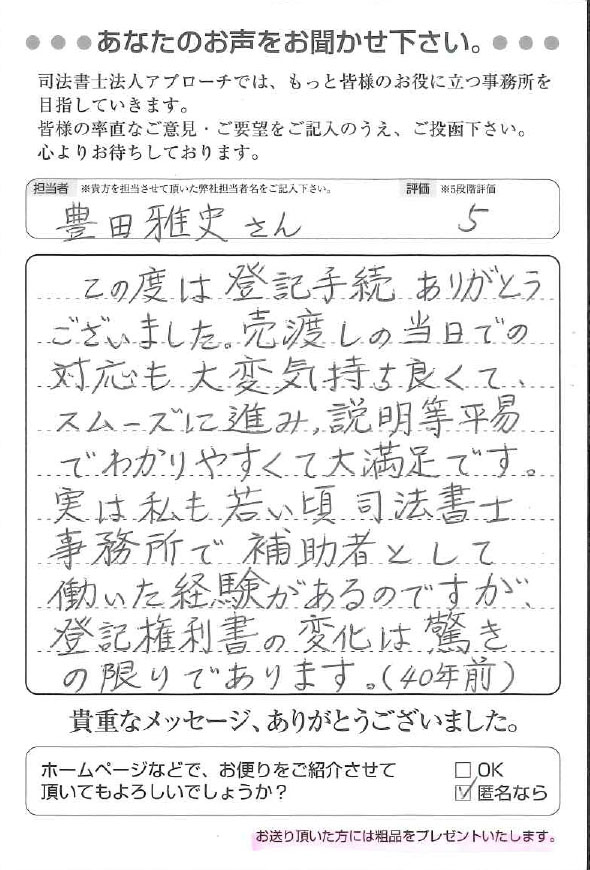 あなたのお声をお聞かせ下さい。
司法書士法人アプローチでは、もっと皆様のお役に立つ事務所を
目指していきます。
皆様の率直なご意見・ご要望をご記入のうえ、ご投函下さい。
心よりお待ちしております。
担当者 ※貴方を担当させて頂いた弊社担当者名をご記入下さい。 評価 ※5段階評価
豊田雅史さん 5
この度は登記手続ありがとう
ございました。売渡しの当日での
対応も大変気持ち良くて、
スムーズに進み、説明等平易
でわかりやすくて大満足です。
実は私も若い頃司法書士
事務所で補助者として
働いた経験があるのですが、
登記権利書の変化は驚き
の限りであります。(40年前)
貴重なメッセージ、ありがとうございました。
ホームページなどで、お便りをご紹介させて □OK
頂いてもよろしいでしょうか? ☑匿名なら
お送り頂いた方には粗品をプレゼントいたします。